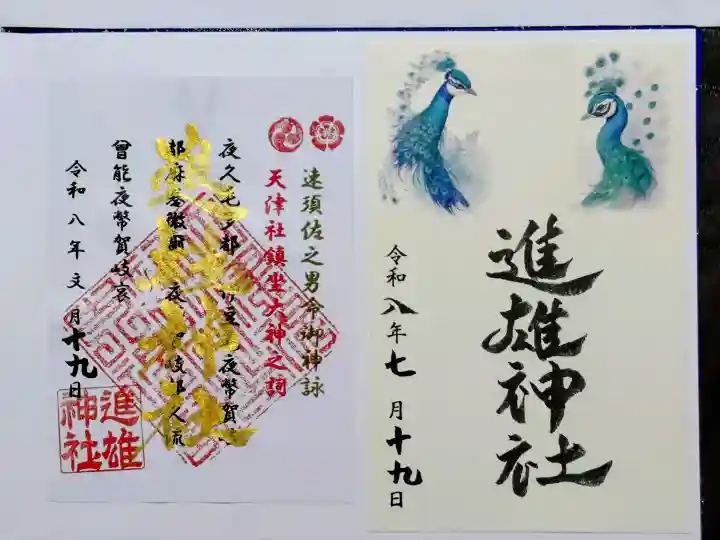 進雄神社
令和八年七月十九日
速須佐之男命御神詠
天津社鎮坐大神之詞
夜久毛多都
夜幣賀
曾能夜幣賀岐袁
令和八年文月十九日
進雄神社
進雄
神社